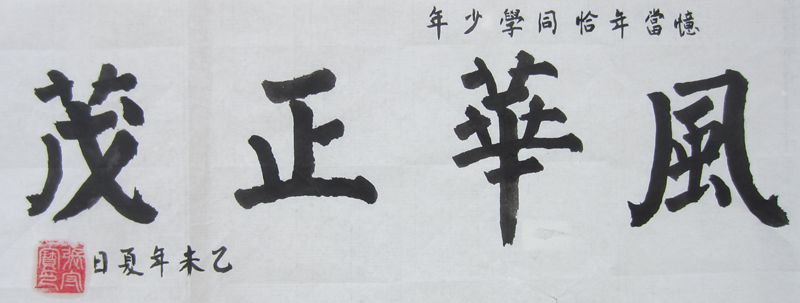 憶當年恰同學少年
風華正茂
乙未年夏日